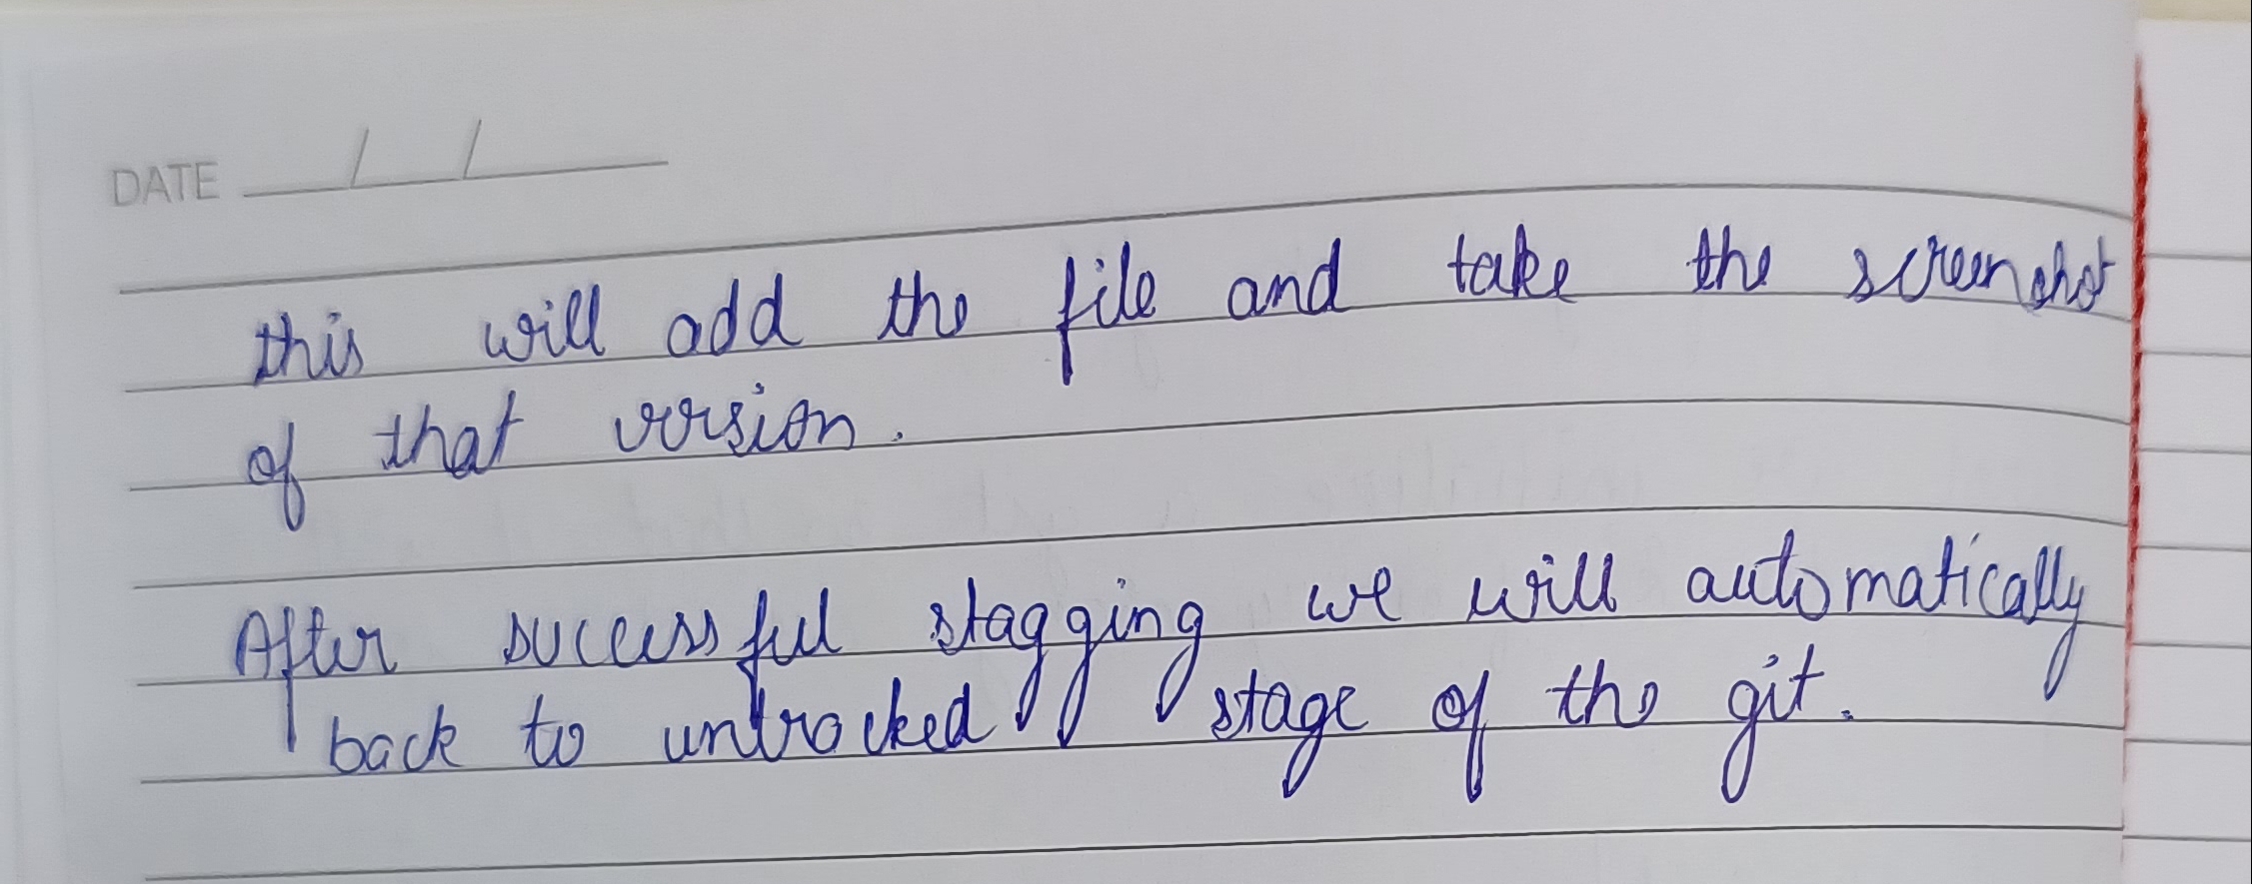 DATE / /
this will add the file and take the screenshot
of that version.
After successful stagging we will automatically
back to untracked stage of the git.